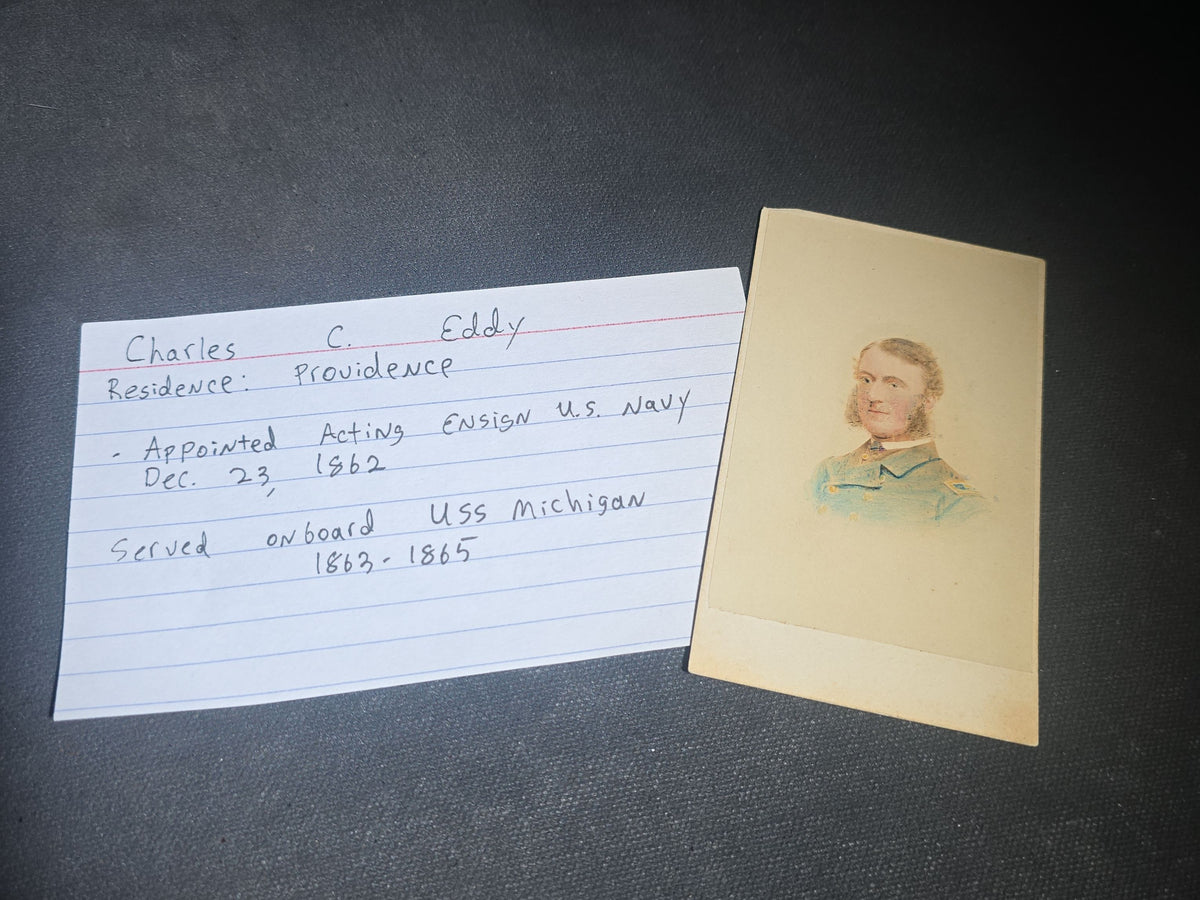 Charles C. Eddy
Residence: Providence
- Appointed Acting Ensign U.S. Navy
Dec. 23, 1862
Served onboard USS Michigan
1863 - 1865